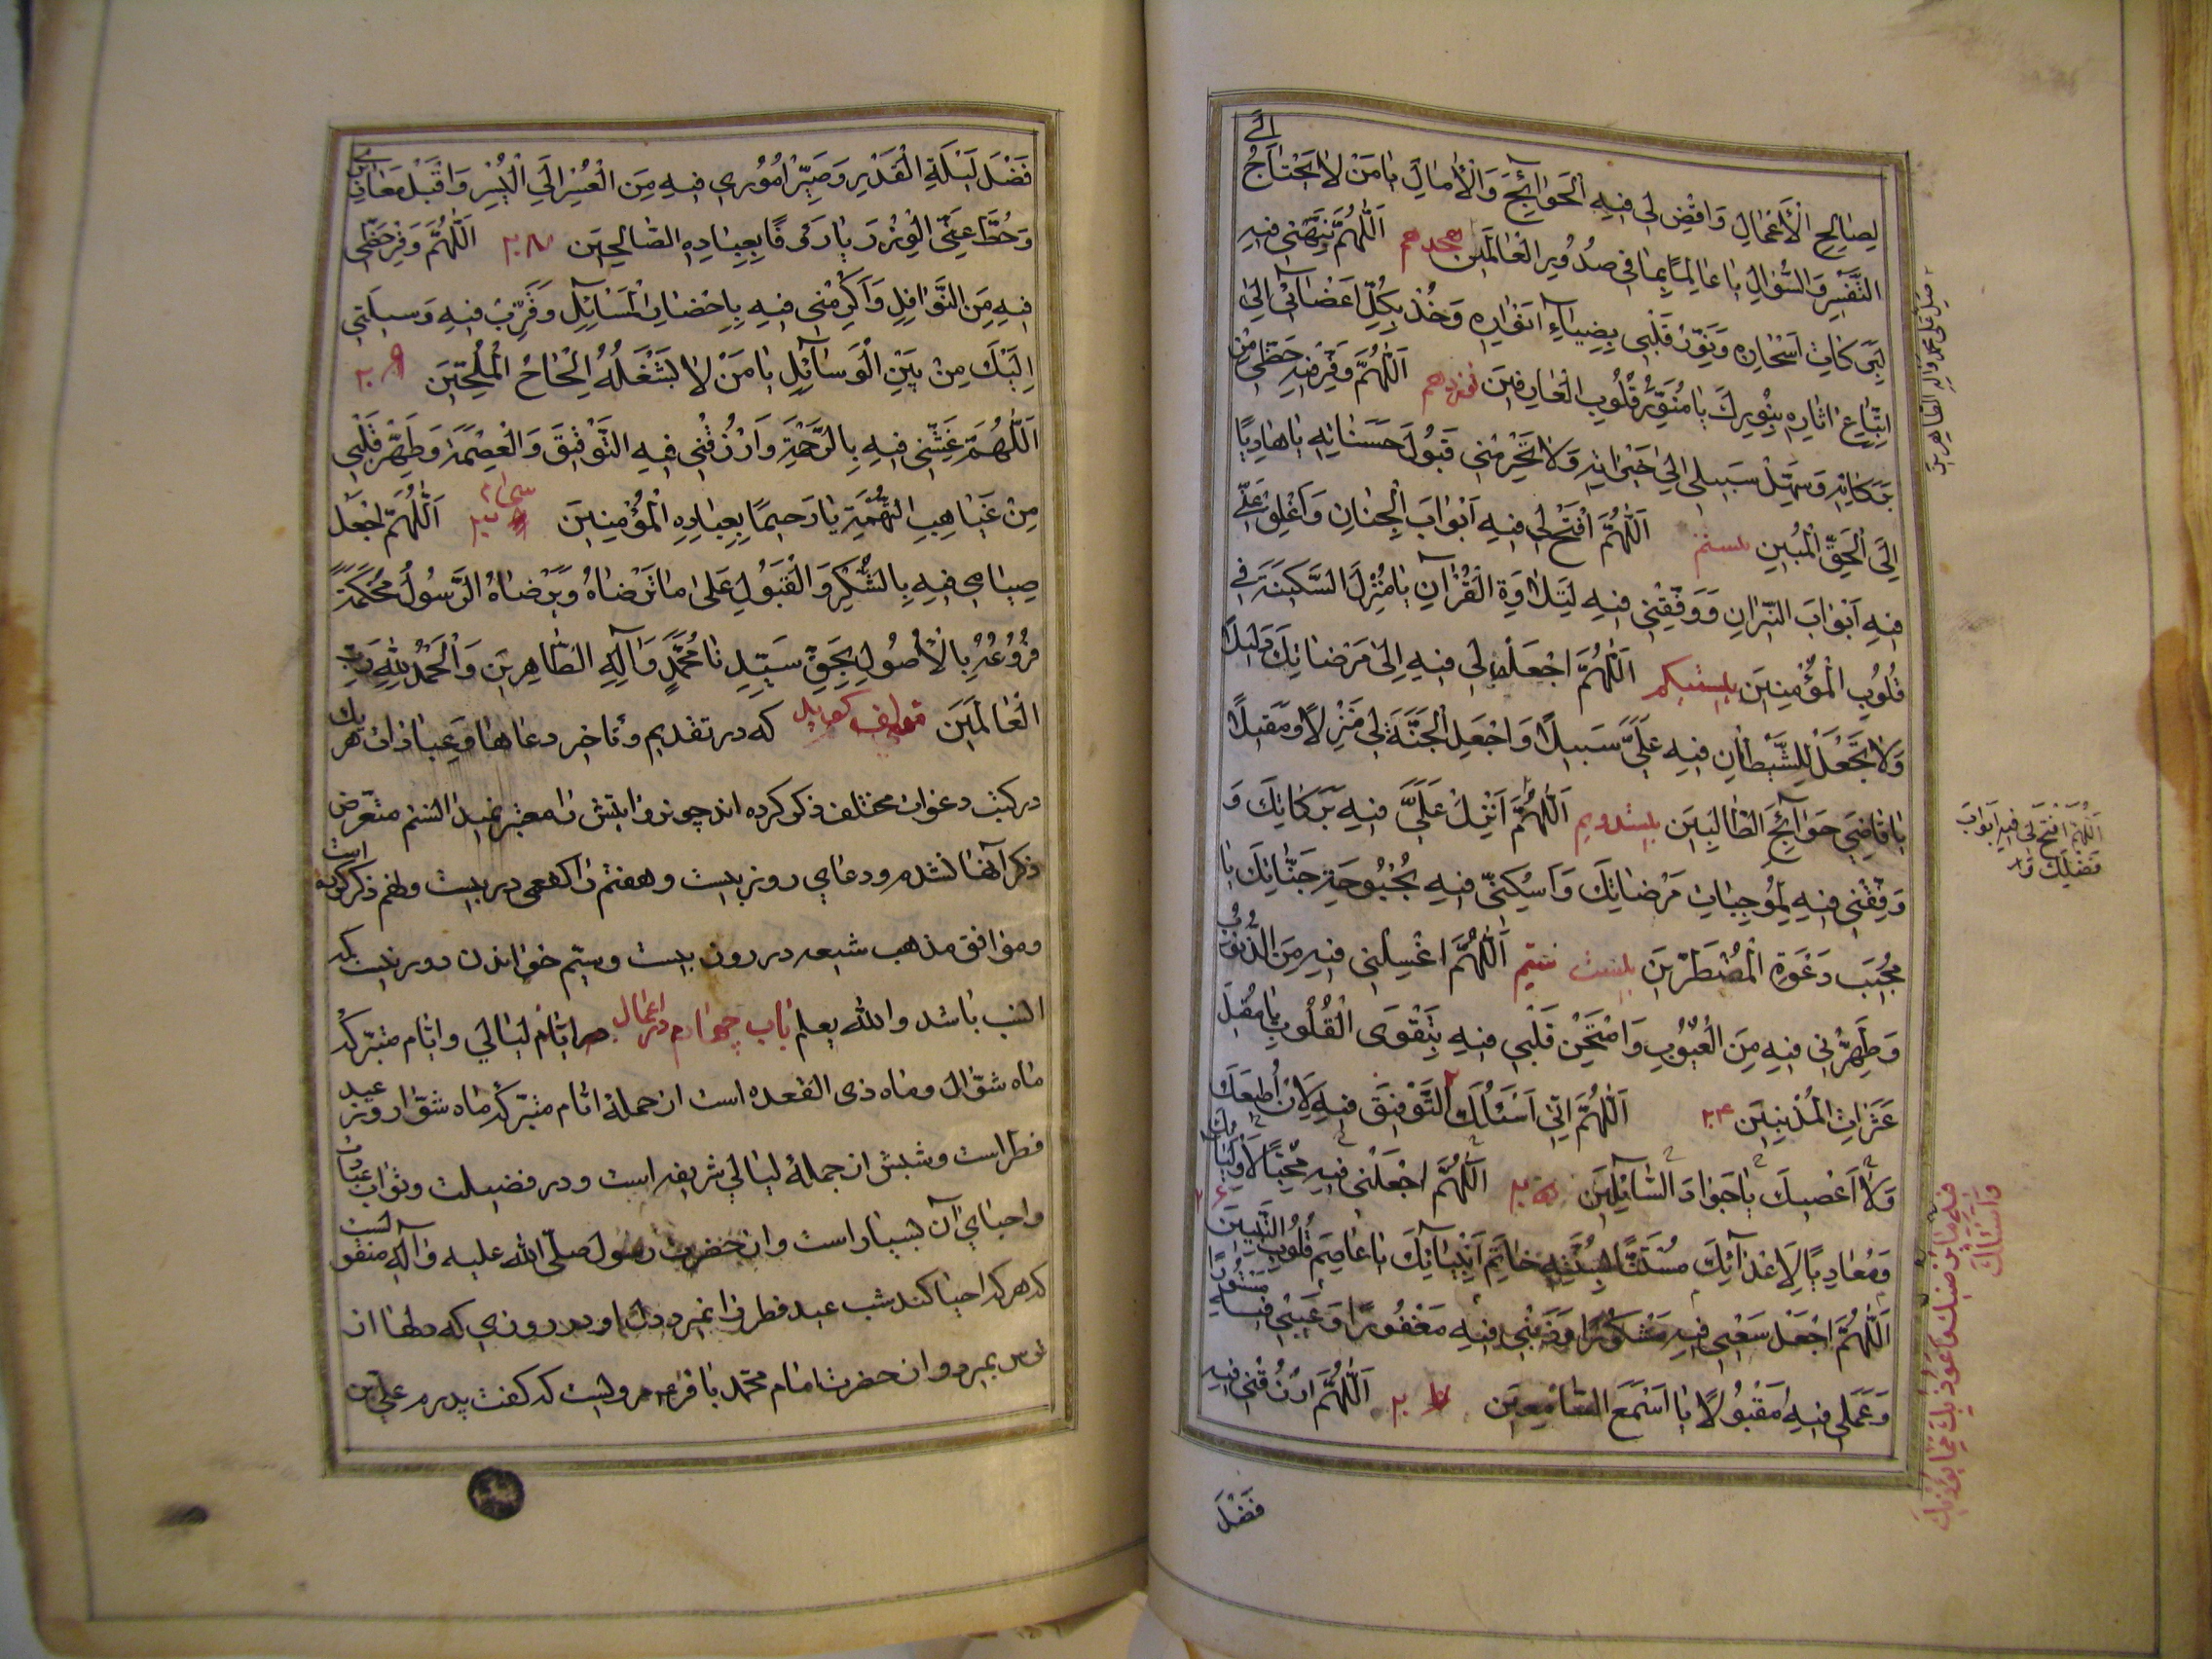 لِصٰالِحِ الْأَعْمٰالِ وَاقْضِ لى فيهِ الْحَوٰائِجَ وَالْأٰمٰالَ يٰا مَنْ لٰا يَحْتٰاجُ اِلَى
التَّفْسيرِ وَالسُّؤٰالِ يٰا عٰالِمًا بِمٰا فى صُدُورِ الْعٰالَمينَ هجدهم اَللّٰهُمَّ نَبِّهْنى فيهِ
لِبَرَكٰاتِ اَسْحٰارِهِ وَنَوِّرْ قَلْبى بِضِيٰاءِ اَنْوٰارِهِ وَخُذْ بِكُلِّ اَعْضٰائى اِلَى
اتِّبٰاعِ اٰثٰارِهِ بِنُورِكَ يٰا مُنَوِّرَ قُلُوبِ الْعٰارِفينَ نوزدهم اَللّٰهُمَّ وَفِّرْ فيهِ حَظّى مِنْ
بَرَكٰاتِهِ وَسَهِّلْ سَبيلى اِلىٰ خَيْرٰاتِهِ وَلٰا تَحْرِمْنى قَبُولَ حَسَنٰاتِهِ يٰا هٰادِيًا
اِلَى الْحَقِّ الْمُبينِ بيستم اَللّٰهُمَّ افْتَحْ لى فيهِ اَبْوٰابَ الْجِنٰانِ وَاَغْلِقْ عَنّى
فيهِ اَبْوٰابَ النّيرٰانِ وَوَفِّقْنى فيهِ لِتِلٰاوَةِ الْقُرْآنِ يٰا مُنْزِلَ السَّكينَةِ فى
قُلُوبِ الْمُؤْمِنينَ بيستيكم اَللّٰهُمَّ اجْعَلْ لى فيهِ اِلىٰ مَرْضٰاتِكَ دَليلًا
وَلٰا تَجْعَلْ لِلشَّيْطٰانِ فيهِ عَلَىَّ سَبيلًا وَاجْعَلِ الْجَنَّةَ لى مَنْزِلًا وَمَقيلًا
يٰا قٰاضِىَ حَوٰائِجَ الطّٰالِبينَ بيستدويم اَللّٰهُمَّ اَنْزِلْ عَلَىَّ فيهِ بَرَكٰاتِكَ وَ
وَفِّقْنى فيهِ لِمُوجِبٰاتِ مَرْضٰاتِكَ وَاَسْكِنّى فيهِ بُحْبُوحَةِ جَنّٰاتِكَ يٰا
مُجيبَ دَعْوَةِ الْمُضْطَرّينَ بيست سيم اَللّٰهُمَّ اغْسِلْنى فيهِ مِنَ الذُّنُوبِ
وَطَهِّرْنى فيهِ مِنَ الْعُيُوبِ وَامْتَحِنْ قَلْبى فيهِ بِتَقْوَى الْقُلُوبِ يٰا مُقيلَ
عَثَرٰاتِ الْمُذْنِبينَ ٢٤ اَللّٰهُمَّ اِنّى اَسْئَلُكَ التَّوْفيقَ فيهِ لِاَنْ اُطيعَكَ
وَلٰا اَعْصيكَ يٰا جَوٰادَ السّٰائِلينَ ٢٥ اَللّٰهُمَّ اجْعَلْنى فيهِ مُحِبًّا لِاَوْلِيٰائِكَ
وَمُعٰادِيًا لِاَعْدٰائِكَ مُسْتَنًّا بِسُنَّةِ خٰاتِمِ اَنْبِيٰائِكَ يٰا عٰاصِمَ قُلُوبِ النَّبِيّينَ ٢٦
اَللّٰهُمَّ اجْعَلْ سَعْيى فيهِ مَشْكُورًا وَذَنْبى فيهِ مَغْفُورًا وَعَيْبى فيهِ مَسْتُورًا
وَعَمَلى فيهِ مَقْبُولًا يٰا اَسْمَعَ السّٰامِعينَ ٢٧ اَللّٰهُمَّ ارْزُقْنى فيهِ
فَضْلَ
صل على محمد واله الطاهرين
اَللّٰهُمَّ افْتَحْ لى فيهِ اَبْوٰابَ
فَضْلِكَ
فيهِ مٰا يُرْضيكَ وَاَعُوذُ بِكَ مِمّٰا يُؤْذيكَ
وَاَسْئَلُكَ
فَضْلَ لَيْلَةِ الْقَدْرِ وَصَيِّرْ اُمُورى فيهِ مِنَ الْعُسْرِ اِلَى الْيُسْرِ وَاقْبَلْ مَعٰاذيرى
وَحُطَّ عَنّى الْوِزْرَ يٰا رَؤُفًا بِعِبٰادِهِ الصّٰالِحينَ ٢٨ اَللّٰهُمَّ وَفِّرْ حَظّى
فيهِ مِنَ النَّوٰافِلِ وَاَكْرِمْنى فيهِ بِاِحْضٰارِ الْمَسٰائِلِ وَقَرِّبْ فيهِ وَسيلَتى
اِلَيْكَ مِنْ بَيْنِ الْوَسٰائِلِ يٰا مَنْ لٰا يَشْغَلُهُ اِلْحٰاحُ الْمُلِحّينَ ٢٩
اَللّٰهُمَّ غَشِّنى فيهِ بِالرَّحْمَةِ وَارْزُقْنى فيهِ التَّوْفيقَ وَالْعِصْمَةَ وَطَهِّرْ قَلْبى
مِنْ غَيٰاهِبِ التُّهْمَةِ يٰا رَحيمًا بِعِبٰادِهِ الْمُؤْمِنينَ سى ام اَللّٰهُمَّ اجْعَلْ
صِيٰامى فيهِ بِالشُّكْرِ وَالْقَبُولِ عَلىٰ مٰا تَرْضٰاهُ وَيَرْضٰاهُ الرَّسُولُ مُحْكَمَةً
فُرُوعُهُ بِالْاُصُولِ بِحَقِّ سَيِّدِنٰا مُحَمَّدٍ وَآلِهِ الطّٰاهِرينَ وَالْحَمْدُ لِلّٰهِ رَبِّ
الْعٰالَمينَ مؤلف گويد كه در تقديم و تأخير دعاها و عبارات هر يك
در كتب دعوات مختلف ذكر كرده اند چون روايتش را معتبر نميدانستم متعرض
ذكر آنها نشدم و دعاى روز بيست و هفتم را كفعمى در بيست و نهم ذكر كرده است
و موافق مذهب شيعه در روز بيست و سيم خواندن در بيست كه
انسب باشد والله يعلم باب چهارم در اعمال ايام ليالي و ايام متبركه
ماه شوال و ماه ذى القعده است از جمله ايام متبركه ماه شوال روز عيد
فطر است و شبش از جملهٔ ليالي شريفه است و در فضيلت و ثواب عبادت
و احياي آن بسيار است و از حضرت رسول صلّى الله عليه وآله منقولست
كه هر كه احيا كند شب عيد فطر را نميرد دل او در روزي كه دلها از
ترس بميرد و از حضرت امام محمّد باقر ع مرويست كه گفت پدرم علي بن